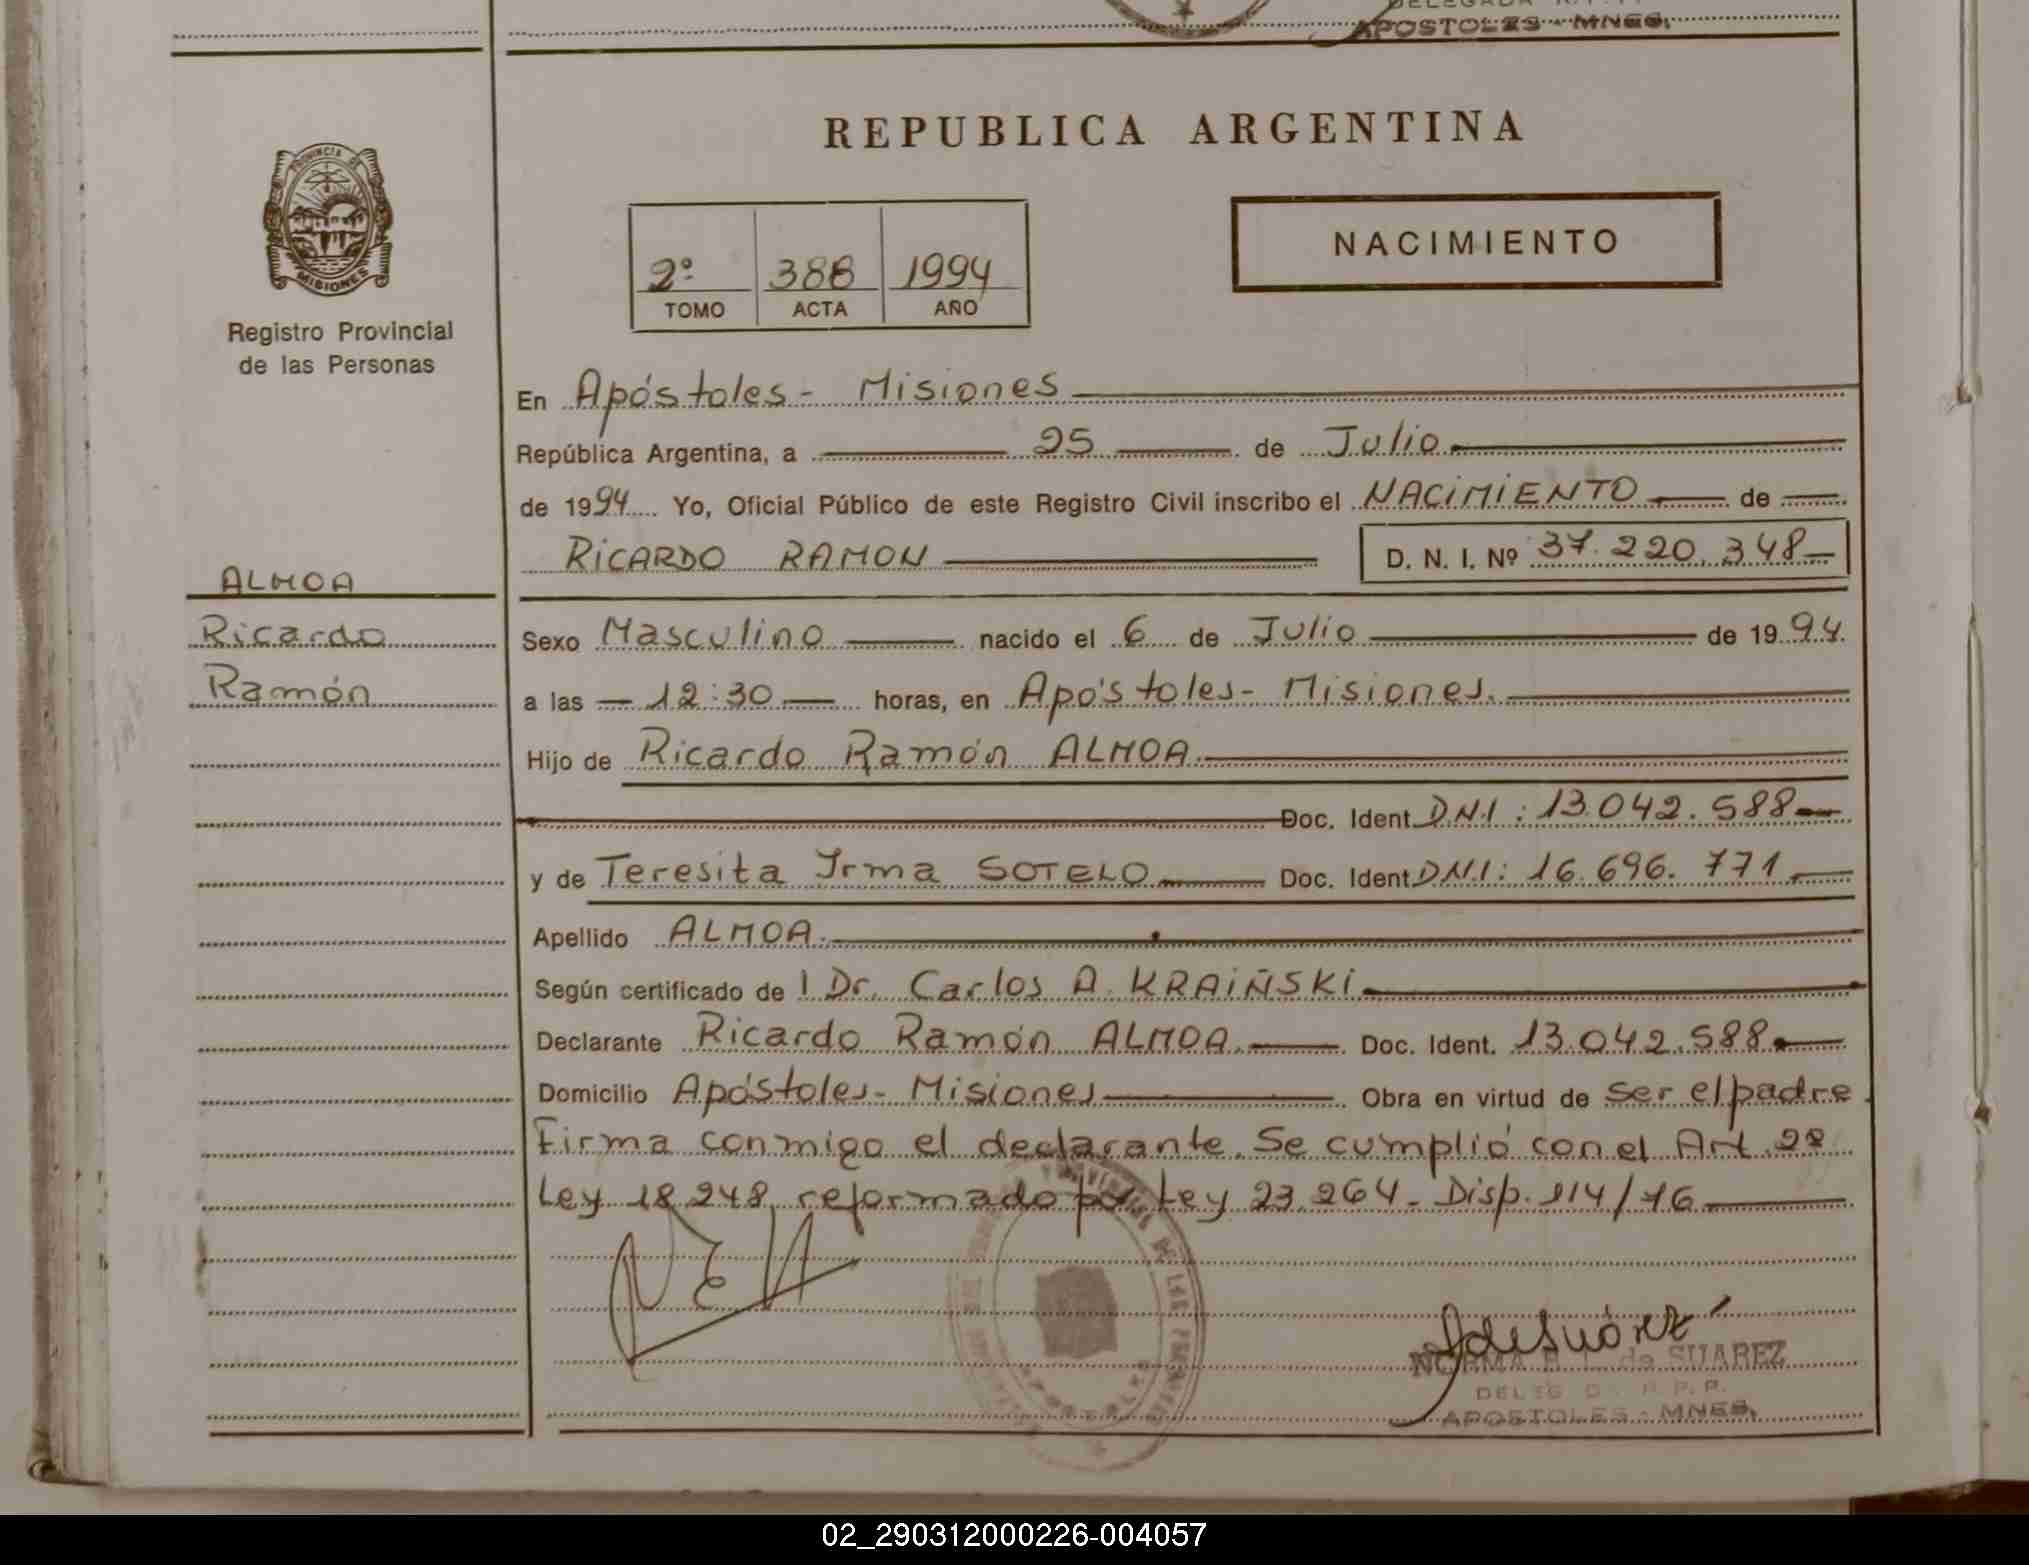 APOSTOLES - MNES.
REPUBLICA ARGENTINA
PROVINCIA DE
MISIONES
Registro Provincial
de las Personas
2º 388 1994
TOMO ACTA AÑO
NACIMIENTO
En Apóstoles - Misiones
República Argentina, a 25 de Julio
de 1994 Yo, Oficial Público de este Registro Civil inscribo el NACIMIENTO de
RICARDO RAMON D. N. I. Nº 37.220.348
ALMOA
Ricardo
Ramón
Sexo Masculino nacido el 6 de Julio de 1994.
a las 12:30 horas, en Apóstoles - Misiones.
Hijo de Ricardo Ramón ALMOA
Doc. Ident. DNI: 13.042.588
y de Teresita Irma SOTELO Doc. Ident. DNI: 16.696.771
Apellido ALMOA.
Según certificado del Dr. Carlos A. KRAIÑSKI
Declarante Ricardo Ramón ALMOA. Doc. Ident. 13.042.588
Domicilio Apóstoles - Misiones Obra en virtud de ser el padre.
Firma conmigo el declarante. Se cumplió con el Art. 2º
Ley 18.248 reformado por Ley 23.264 - Disp. 114/76
de SUAREZ
APOSTOLES - MNES.
02_290312000226-004057